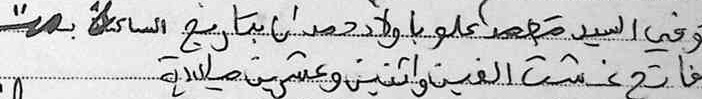 توفي السيد محمد علو باولاد حمدان بتاريخ
فاتح غشت الفين واثنين وعشرين ميلادية